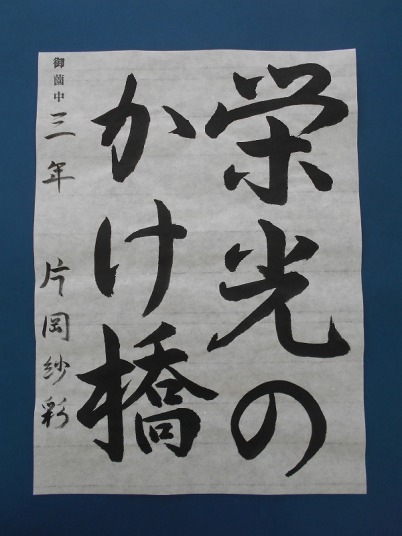 栄光の
かけ橋
御薗中 三年 片岡紗彩